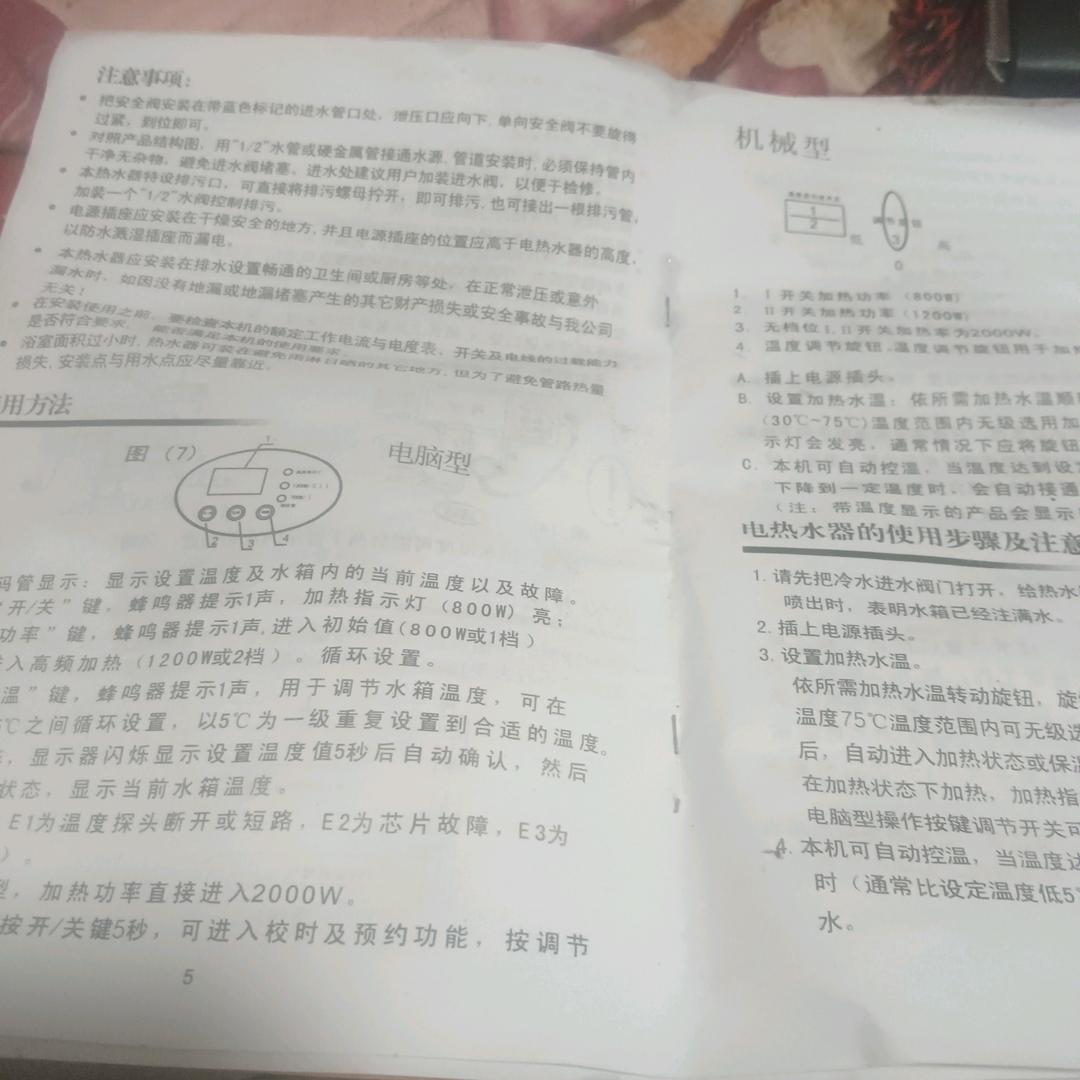 注意事项：
• 把安全阀安装在带蓝色标记的进水管口处，泄压口应向下,单向安全阀不要旋得
过紧，到位即可。
• 对照产品结构图，用"1/2"水管或硬金属管接通水源,管道安装时,必须保持管内
干净无杂物，避免进水阀堵塞，进水处建议用户加装进水阀，以便于检修。
• 本热水器特设排污口，可直接将排污螺母拧开，即可排污,也可接出一根排污管，
加装一个"1/2"水阀控制排污。
• 电源插座应安装在干燥安全的地方,并且电源插座的位置应高于电热水器的高度，
以防水溅湿插座而漏电。
• 本热水器应安装在排水设置畅通的卫生间或厨房等处，在正常泄压或意外
漏水时，如因没有地漏或地漏堵塞产生的其它财产损失或安全事故与我公司
无关！
• 在安装使用之前，要检查本机的额定工作电流与电度表、开关及电线的过载能力
是否符合要求，能否满足本机的使用要求。
• 浴室面积过小时，热水器可装在避免雨淋日晒的其它地方,但为了避免管路热量
损失,安装点与用水点应尽量靠近。
用方法
图（7）
电脑型
1
2
3
4
码管显示：显示设置温度及水箱内的当前温度以及故障。
"开/关"键，蜂鸣器提示1声，加热指示灯（800W）亮；
功率"键，蜂鸣器提示1声,进入初始值(800W或1档）
入高频加热（1200W或2档）。循环设置。
温"键，蜂鸣器提示1声，用于调节水箱温度，可在
℃之间循环设置，以5℃为一级重复设置到合适的温度。
，显示器闪烁显示设置温度值5秒后自动确认，然后
状态，显示当前水箱温度。
E1为温度探头断开或短路，E2为芯片故障，E3为
）。
型，加热功率直接进入2000W。
按开/关键5秒，可进入校时及预约功能，按调节
5
机械型
1
2
低
调节旋钮
3
高
0
1. I 开关加热功率（800W）
2. II 开关加热功率（1200W）
3. 无档位I、II开关加热率为2000W。
4. 温度调节旋钮,温度调节旋钮用于加
A. 插上电源插头。
B. 设置加热水温：依所需加热水温顺
(30℃~75℃)温度范围内无级选用加
示灯会发亮，通常情况下应将旋钮
C. 本机可自动控温，当温度达到设
下降到一定温度时，会自动接通
（注：带温度显示的产品会显示
电热水器的使用步骤及注意
1. 请先把冷水进水阀门打开，给热水
喷出时，表明水箱已经注满水。
2. 插上电源插头。
3. 设置加热水温。
依所需加热水温转动旋钮，旋
温度75℃温度范围内可无级选
后，自动进入加热状态或保温
在加热状态下加热，加热指
电脑型操作按键调节开关可
4. 本机可自动控温，当温度达
时（通常比设定温度低5
水。